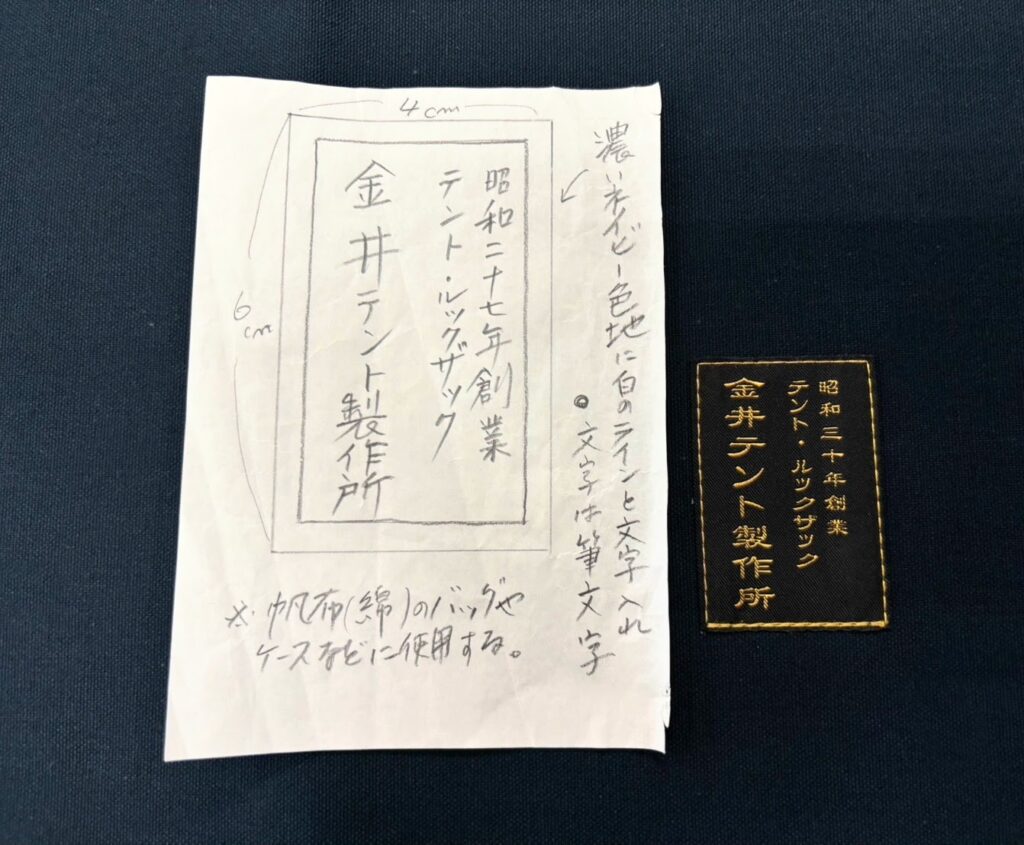 4cm
6cm
昭和二十七年創業
テント・ルックザック
金井テント製作所
濃いネイビー色地に白のラインと文字入れ
◎文字は筆文字
※帆布(綿)のバッグや
ケースなどに使用する。
昭和三十年創業
テント・ルックザック
金井テント製作所